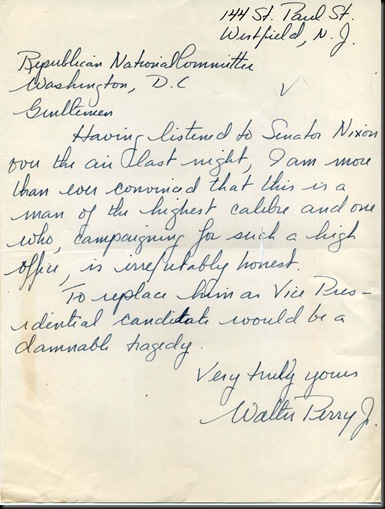 144 St. Paul St.
Westfield, N. J.
Republican National Committee
Washington, D. C
Gentlemen
Having listened to Senator Nixon
over the air last night, I am more
than ever convinced that this is a
man of the highest calibre and one
who, campaigning for such a high
office, is irrefutably honest.
To replace him as Vice Pres-
idential candidate would be a
damnable tragedy.
Very truly yours
Walter Perry Jr.